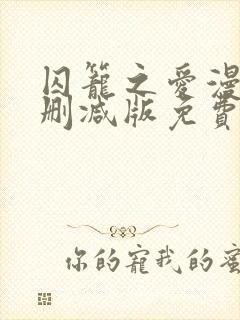 囚籠之愛漫
刪減版免費
你的寵我的蜜